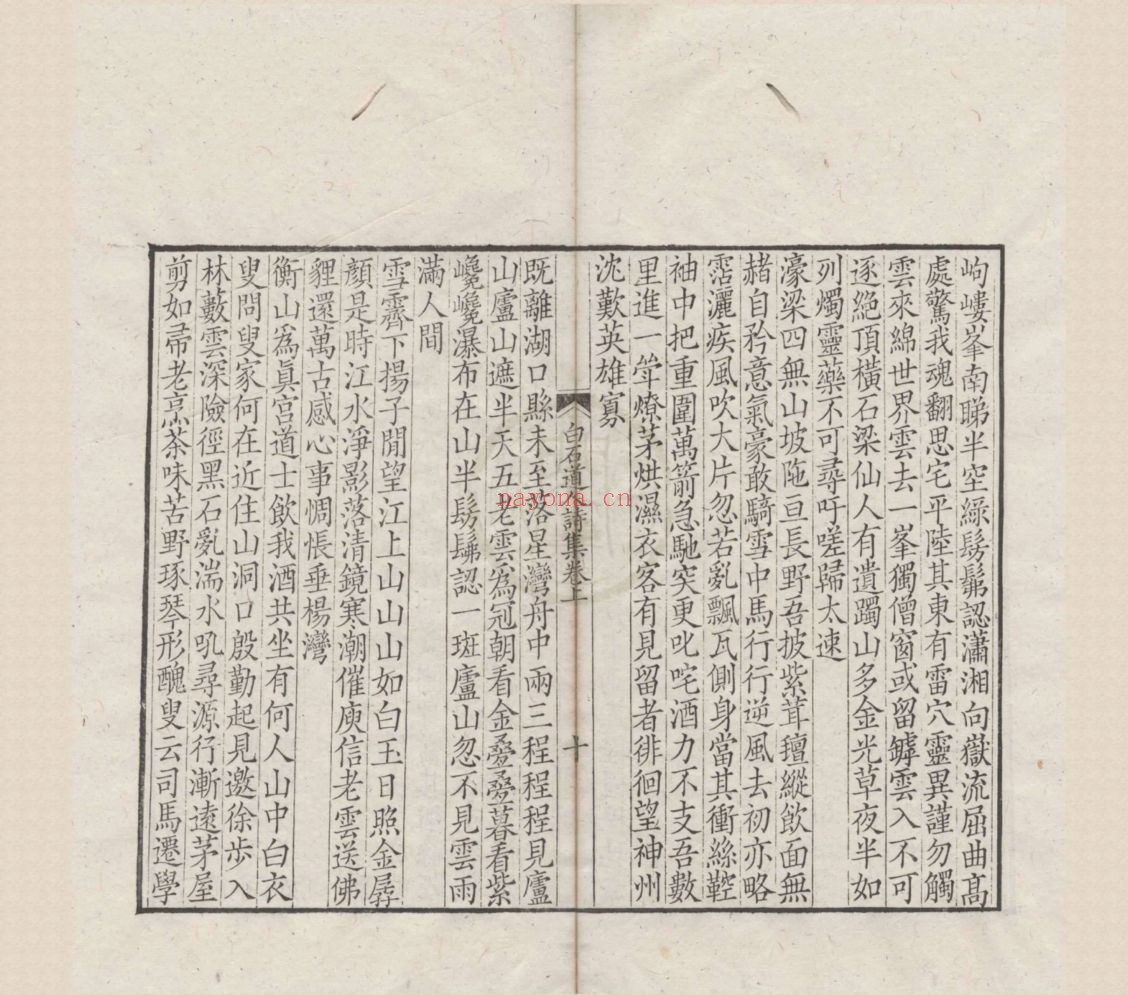 岣嶁峯南睇半空綠髣髴認瀟湘向嶽流屈曲高
處驚我魂翻思宅平陸其東有雷穴靈異謹勿觸
雲來綿世界雲去一峯獨僧窗或留罅雲入不可
逐絶頂橫石梁仙人有遺躅山多金光草夜半如
列燭靈藥不可尋吁嗟歸太速
濠梁四無山坡陁亘長野吾披紫茸氊縱飲面無
赭自矜意氣豪敢騎雪中馬行行逆風去初亦略
霑灑疾風吹大片忽若亂飄瓦側身當其衝絲鞚
袖中把重圍萬箭急馳突更叱咤酒力不支吾數
里進一斝燎茅烘濕衣客有見留者徘徊望神州
沈歎英雄寡
白石道人詩集卷上
十
既離湖口縣未至落星灣舟中兩三程程程見廬
山廬山遮半天五老雲爲冠朝看金疊疊暮看紫
巉巉瀑布在山半髣髴認一斑廬山忽不見雲雨
滿人間
雪霽下揚子閒望江上山山山如白玉日照金孱
顏是時江水淨影落清鏡寒潮催庾信老雲送佛
貍還萬古感心事惆悵垂楊灣
衡山爲眞宫道士飲我酒共坐有何人山中白衣
叟問叟家何在近住山洞口殷勤起見邀徐步入
林藪雲深險徑黑石亂湍水吼尋源行漸遠茅屋
剪如帚老烹茶味苦野琢琴形醜叟云司馬遷學
nayona.cn